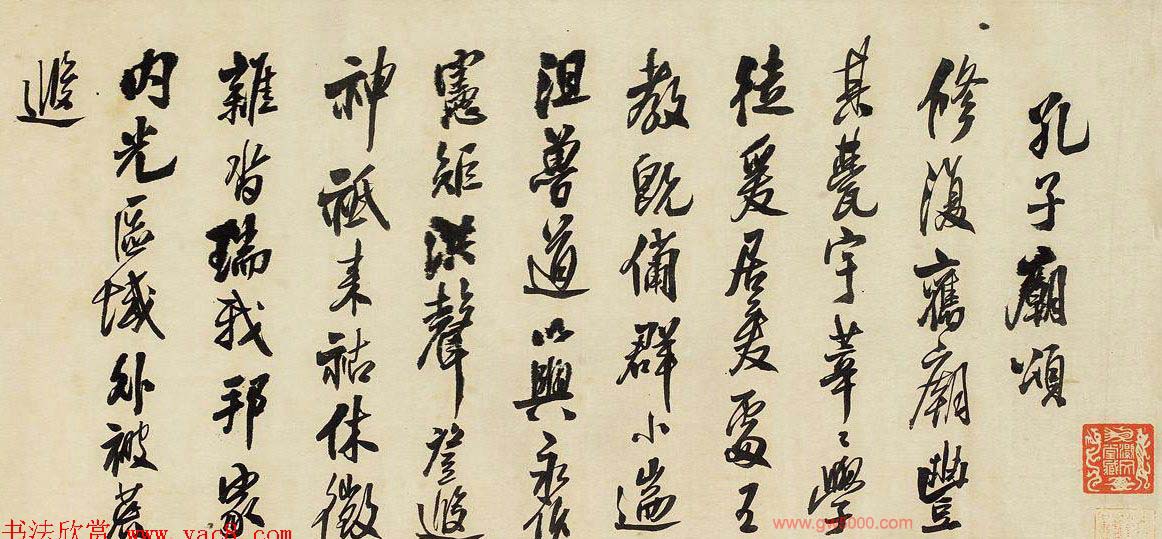 孔子廟頌
修復舊廟豐
其甍宇莘〻學
徒爰居爰處王
教既備群小遄
沮魯道以興永作
憲矩洪聲登遐
神祇来祜休徵
雜沓瑞我邦家
内光區域外被荒
遐
书法欣赏 www.yac8.com
www.gw8000.com